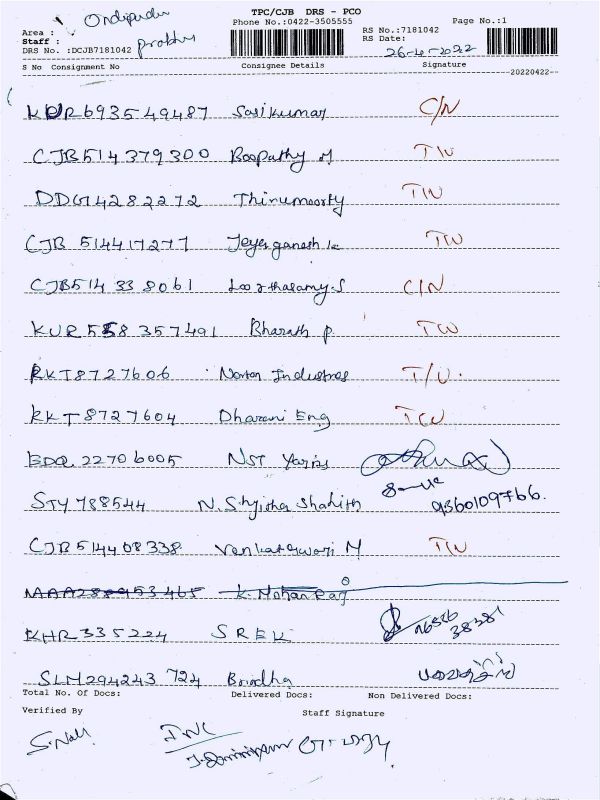 TPC/CJB DRS - PCO
Phone No.:0422-3505555 Page No.:1
Area : Ondipudur
Staff : prabhu
DRS No. :DCJB7181042
RS No.:7181042
RS Date: 26-4-2022
S No Consignment No Consignee Details Signature
--20220422--
KUR693549487 Sasikumar C/N
CJB514379300 Boopathy M T/W
DDG14282272 Thirumoorty T/W
CJB 514417277 Jeyaganesh k TW
CJB514338061 S C/N
KUR558357491 Bharath p. TW
RKT8727606 Norton Industries T/U.
RKT8727604 Dharani Eng TW
EDQ 22706005 NST Yarns
STY 788544 N. Shahith 9360109766.
CJB514408338 Venkateswari M T/W
K. Mohan Raj
KHR335224 SREK
SLM294243724 Brindha
Total No. Of Docs: Delivered Docs: Non Delivered Docs:
Verified By Staff Signature